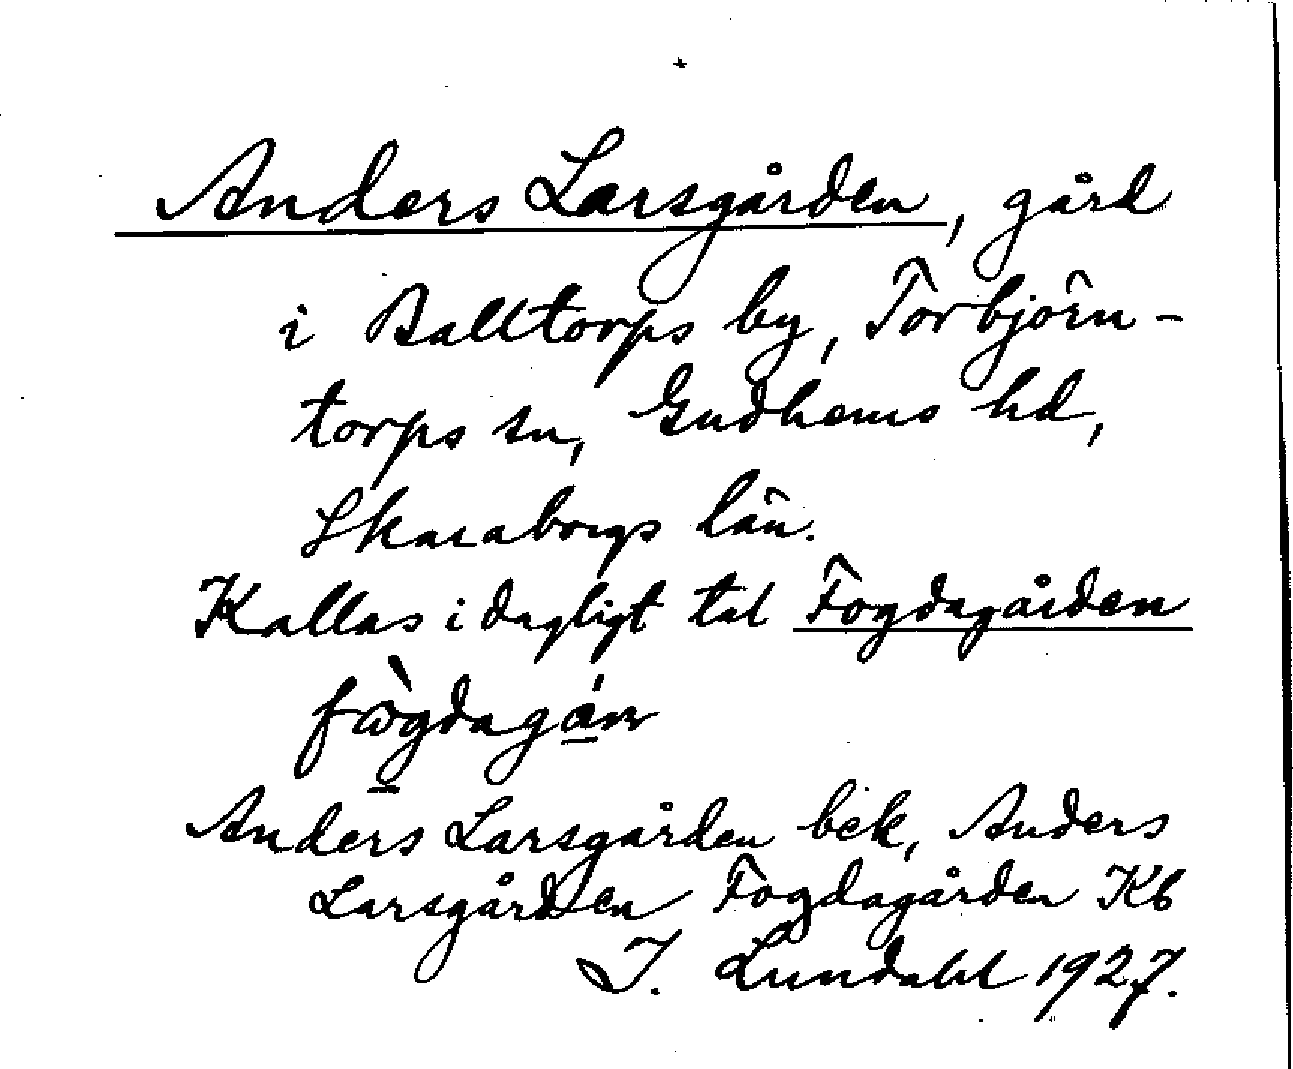 Anders Larsgården, gård
i Balltorps by, Torbjörn-
torps sn, Gudhems hd,
Skaraborgs län.
Kallas i dagligt tal Fogdagården

Anders Larsgården bek, Anders
Larsgården Fogdagården Kb
I. Lundahl 1927.